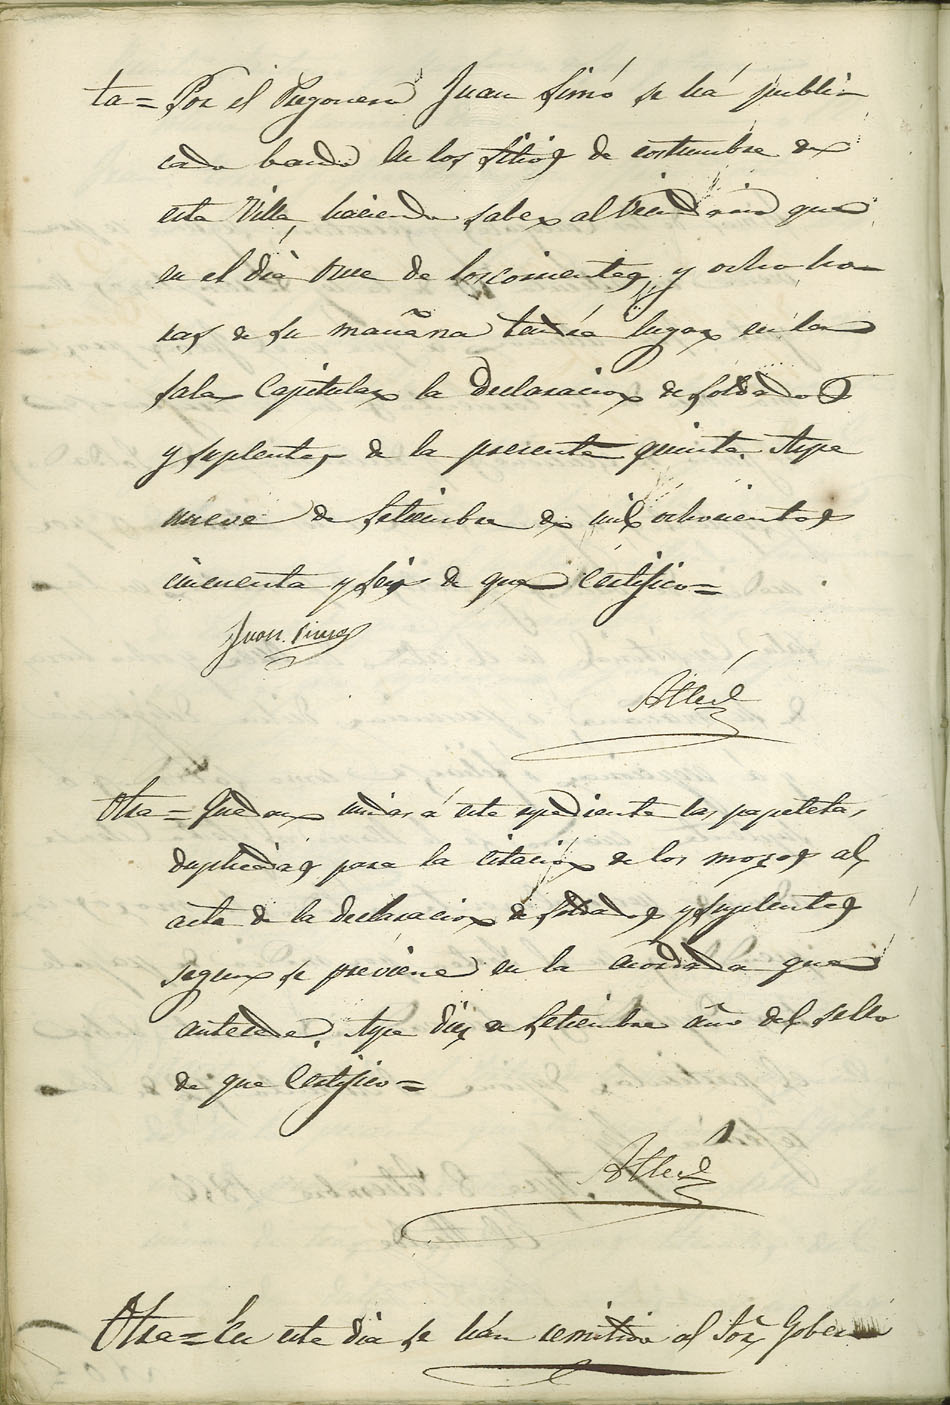 ta = Por el Pregonero Juan Simó se há publi-
cado bando en los sitios de costumbre de
esta Villa, haciendo saber al Vecindario que
en el dia once de los corrientes, y ocho ho-
ras de su mañana tendrá lugar en la
sala Capitular la declaracion de soldados
y suplentes de la presente quinta. Aspe
nueve de Setiembre de mil ochocientos
cincuenta y seis de que Certifico =
Juan
Otra = Quedan unidas á este espediente las papeletas
duplicadas para la citacion de los mozos al
acto de la declaracion de soldados y suplentes
segun se previene en la acordada que
antecede. Aspe diez de Setiembre año del sello
de que Certifico =
Otra = En este dia se hán remitido al Sor. Goberna